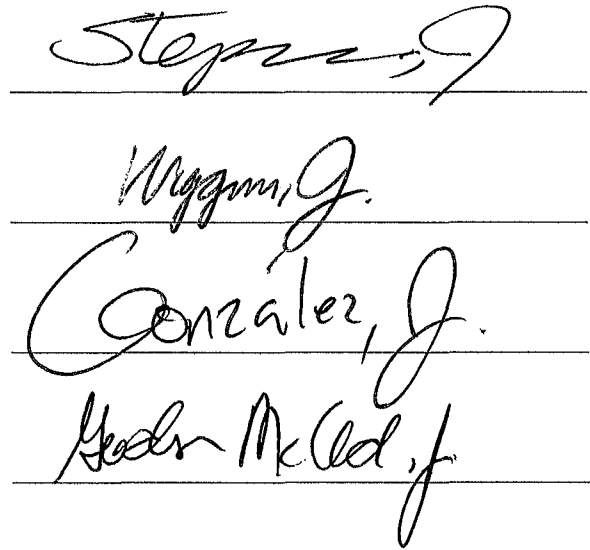 Stephens, J
Wiggins, J.
González, J.
Gordon McCloud, J